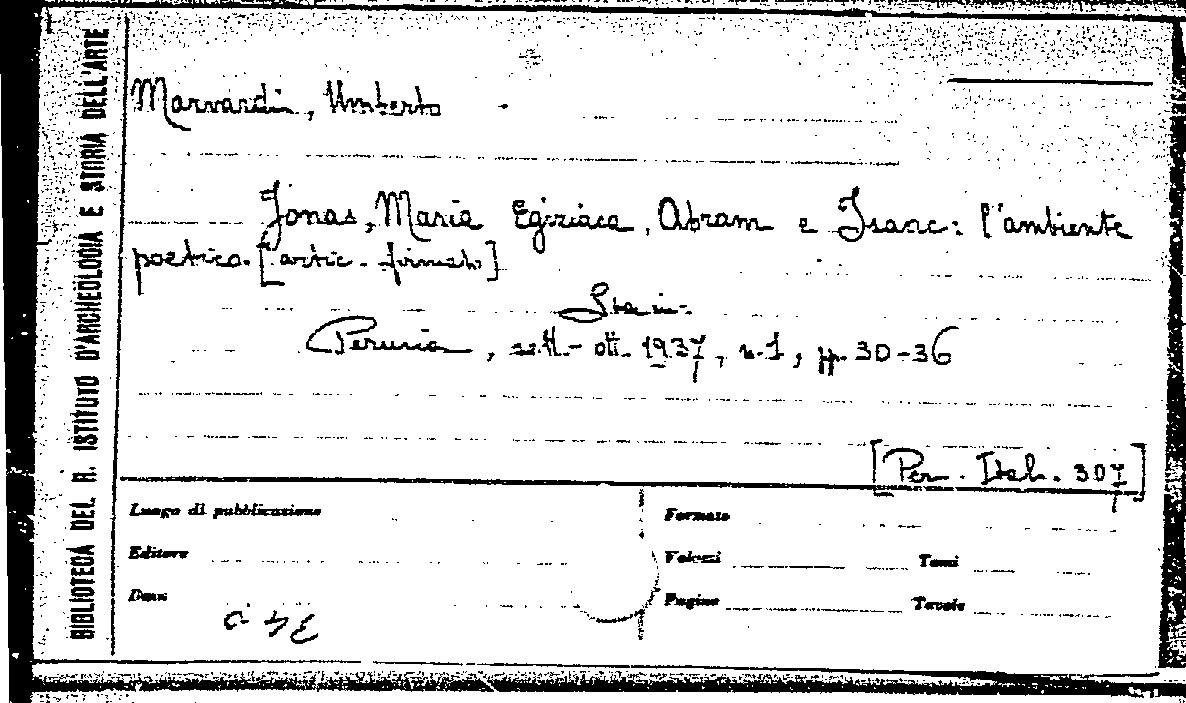 BIBLIOTECA DEL R. ISTITUTO D'ARCHEOLOGIA E STORIA DELL'ARTE
Marvardi, Umberto
Jonas, Maria Egiziaca, Abram e Isaac: l'ambiente
poetico. [artic. firmato]
Perusia, sett.-ott. 1937, n.1, pp. 30-36
[Per. Ital. 307]
Luogo di pubblicazione
Formato
Editore
Volumi Tomi
Data
Pagine Tavole